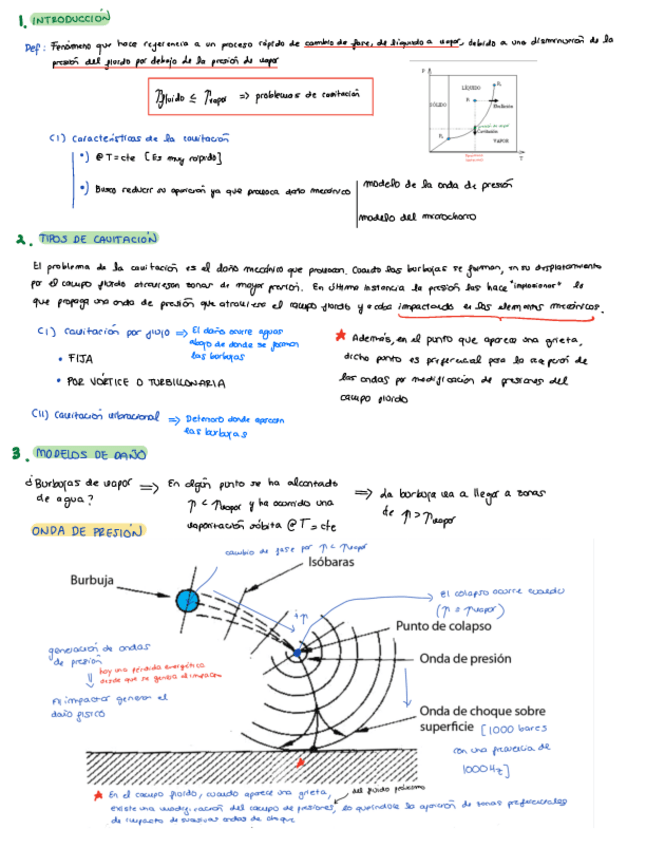 1. INTRODUCCIÓN
Def: Fenómeno que hace referencia a un proceso rápido de cambio de fase, de líquido a vapor, debido a una disminución de la
presión del fluido por debajo de la presión de vapor
Pfluido ≤ Pvapor => problemas de cavitación
P
LÍQUIDO
SÓLIDO
Ebullición
Cavitación
VAPOR
T
C1) Características de la cavitación
•) @ T = cte [Es muy rápido]
•) Busco reducir su aparición ya que provoca daño mecánico
modelo de la onda de presión
modelo del microchorro
2. TIPOS DE CAVITACIÓN
El problema de la cavitación es el daño mecánico que provocan. Cuando las burbujas se forman, en su desplazamiento
por el campo fluido atraviesan zonas de mayor presión. En última instancia la presión las hace "implosionar" lo
que propaga una onda de presión que atraviesa el campo fluido y acaba impactando en los elementos mecánicos.
C1) Cavitación por flujo => El daño ocurre aguas
abajo de donde se forman
las burbujas
• FIJA
• POR VÓRTICE O TURBILLONARIA
CII) Cavitación vibracional => Deterioro donde aparecen
las burbujas
★ Además, en el punto que aparece una grieta,
dicho punto es preferencial para la recepción de
las ondas por modificación de presiones del
campo fluido
3. MODELOS DE DAÑO
¿Burbujas de vapor
de agua?
=> En algún punto se ha alcanzado
p < pvapor y ha ocurrido una
vaporización súbita @ T = cte
=> La burbuja va a llegar a zonas
de p > pvapor
ONDA DE PRESIÓN
cambio de fase por p < pvapor
Isóbaras
Burbuja
↑p
el colapso ocurre cuando
(p ≥ pvapor)
Punto de colapso
Onda de presión
generación de ondas
de presión
hay una pérdida energética
desde que se genera el impacto
El impacto genera el
daño físico
Onda de choque sobre
superficie [1000 bares
con una frecuencia de
1000 Hz]
★ En el campo fluido, cuando aparece una grieta,
del fluido próximo
existe una modificación del campo de presiones, lo que induce la aparición de zonas preferenciales
de impacto de nuevas ondas de choque